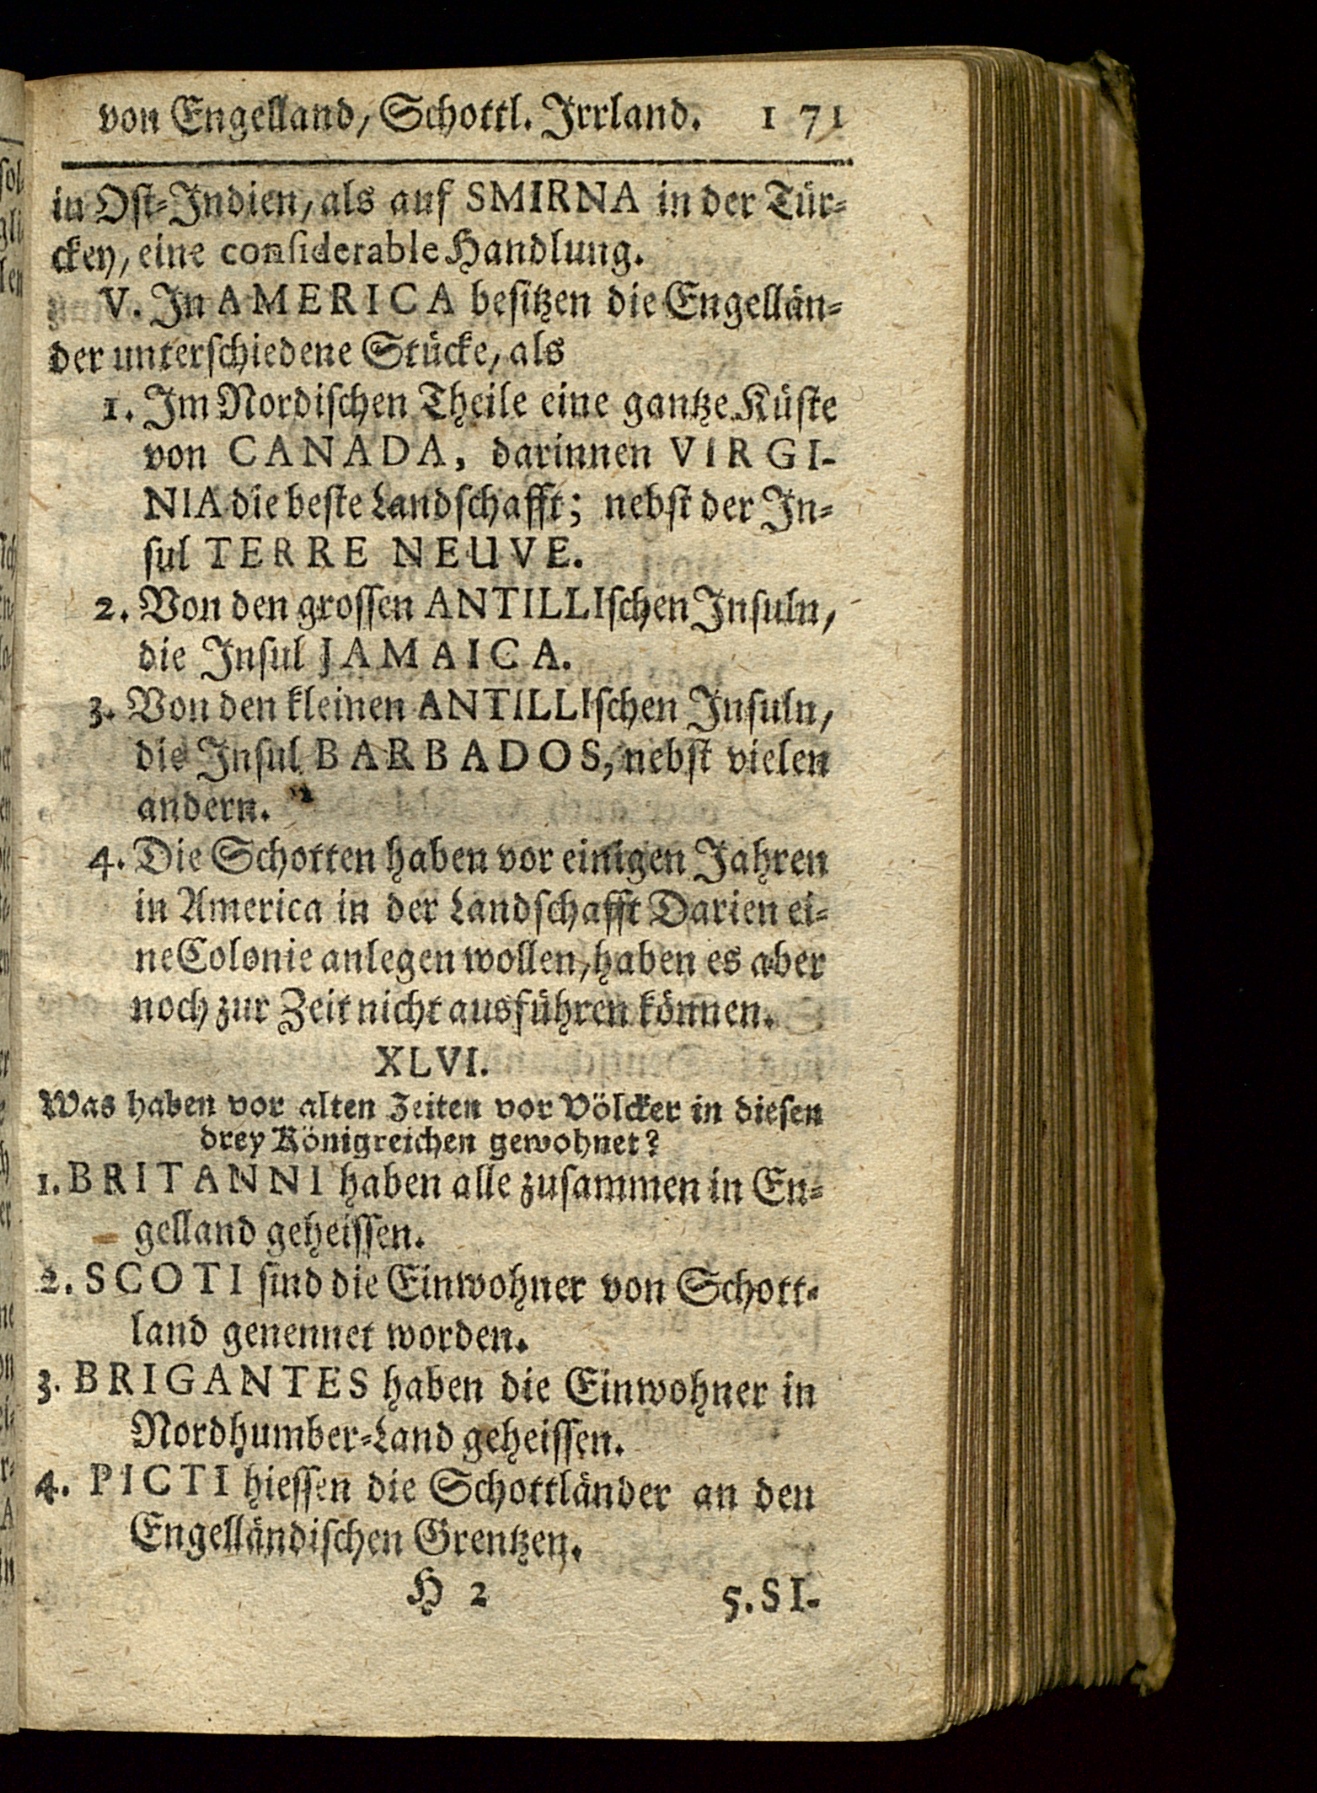 von Engelland, Schottl. Irrland. 171
in Ost-Indien, als auf SMIRNA in der Tür-
ckey, eine considerable Handlung.
V. In AMERICA besitzen die Engellän-
der unterschiedene Stücke, als
1. Im Nordischen Theile eine gantze Küste
von CANADA, darinnen VIRGI-
NIA die beste Landschafft; nebst der In-
sul TERRE NEUVE.
2. Von den grossen ANTILLIschen Insuln,
die Insul JAMAICA.
3. Von den kleinen ANTILLIschen Insuln,
die Insul BARBADOS, nebst vielen
andern.
4. Die Schotten haben vor einigen Jahren
in America in der Landschafft Darien ei-
ne Colonie anlegen wollen, haben es aber
noch zur Zeit nicht ausführen können.
XLVI.
Was haben vor alten Zeiten vor Völcker in diesen
drey Königreichen gewohnet?
1. BRITANNI haben alle zusammen in En-
gelland geheissen.
2. SCOTI sind die Einwohner von Schott-
land genennet worden.
3. BRIGANTES haben die Einwohner in
Nordhumber-Land geheissen.
4. PICTI hiessen die Schottländer an den
Engelländischen Grentzen.
H 2 5. SI-